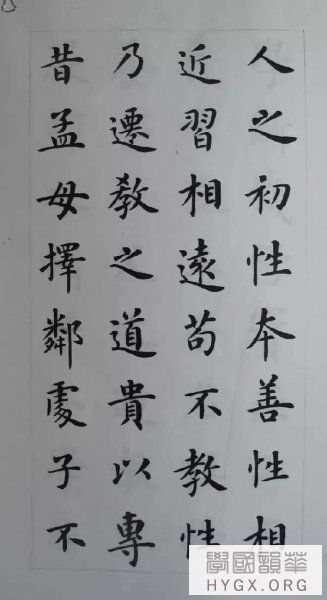 人之初性本善性相
近習相遠苟不教性
乃遷教之道貴以專
昔孟母擇鄰處子不
華韻國學
HYGX.ORG